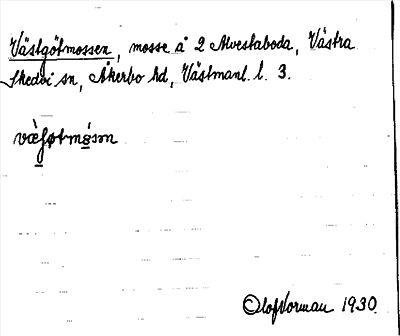 Västgötmossen, mosse å 2 Alvestaboda, Västra
Skedvi sn, Åkerbo hd, Västmanl. l. 3.
Olof Norman 1930.